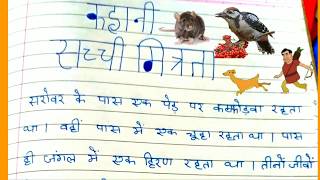 कहानी
सच्ची मित्रता
सरोवर के पास एक पेड़ पर कठफोड़वा रहता
था। वहीं पास में एक चूहा रहता था। पास
ही जंगल में एक हिरण रहता था। तीनों जीवों